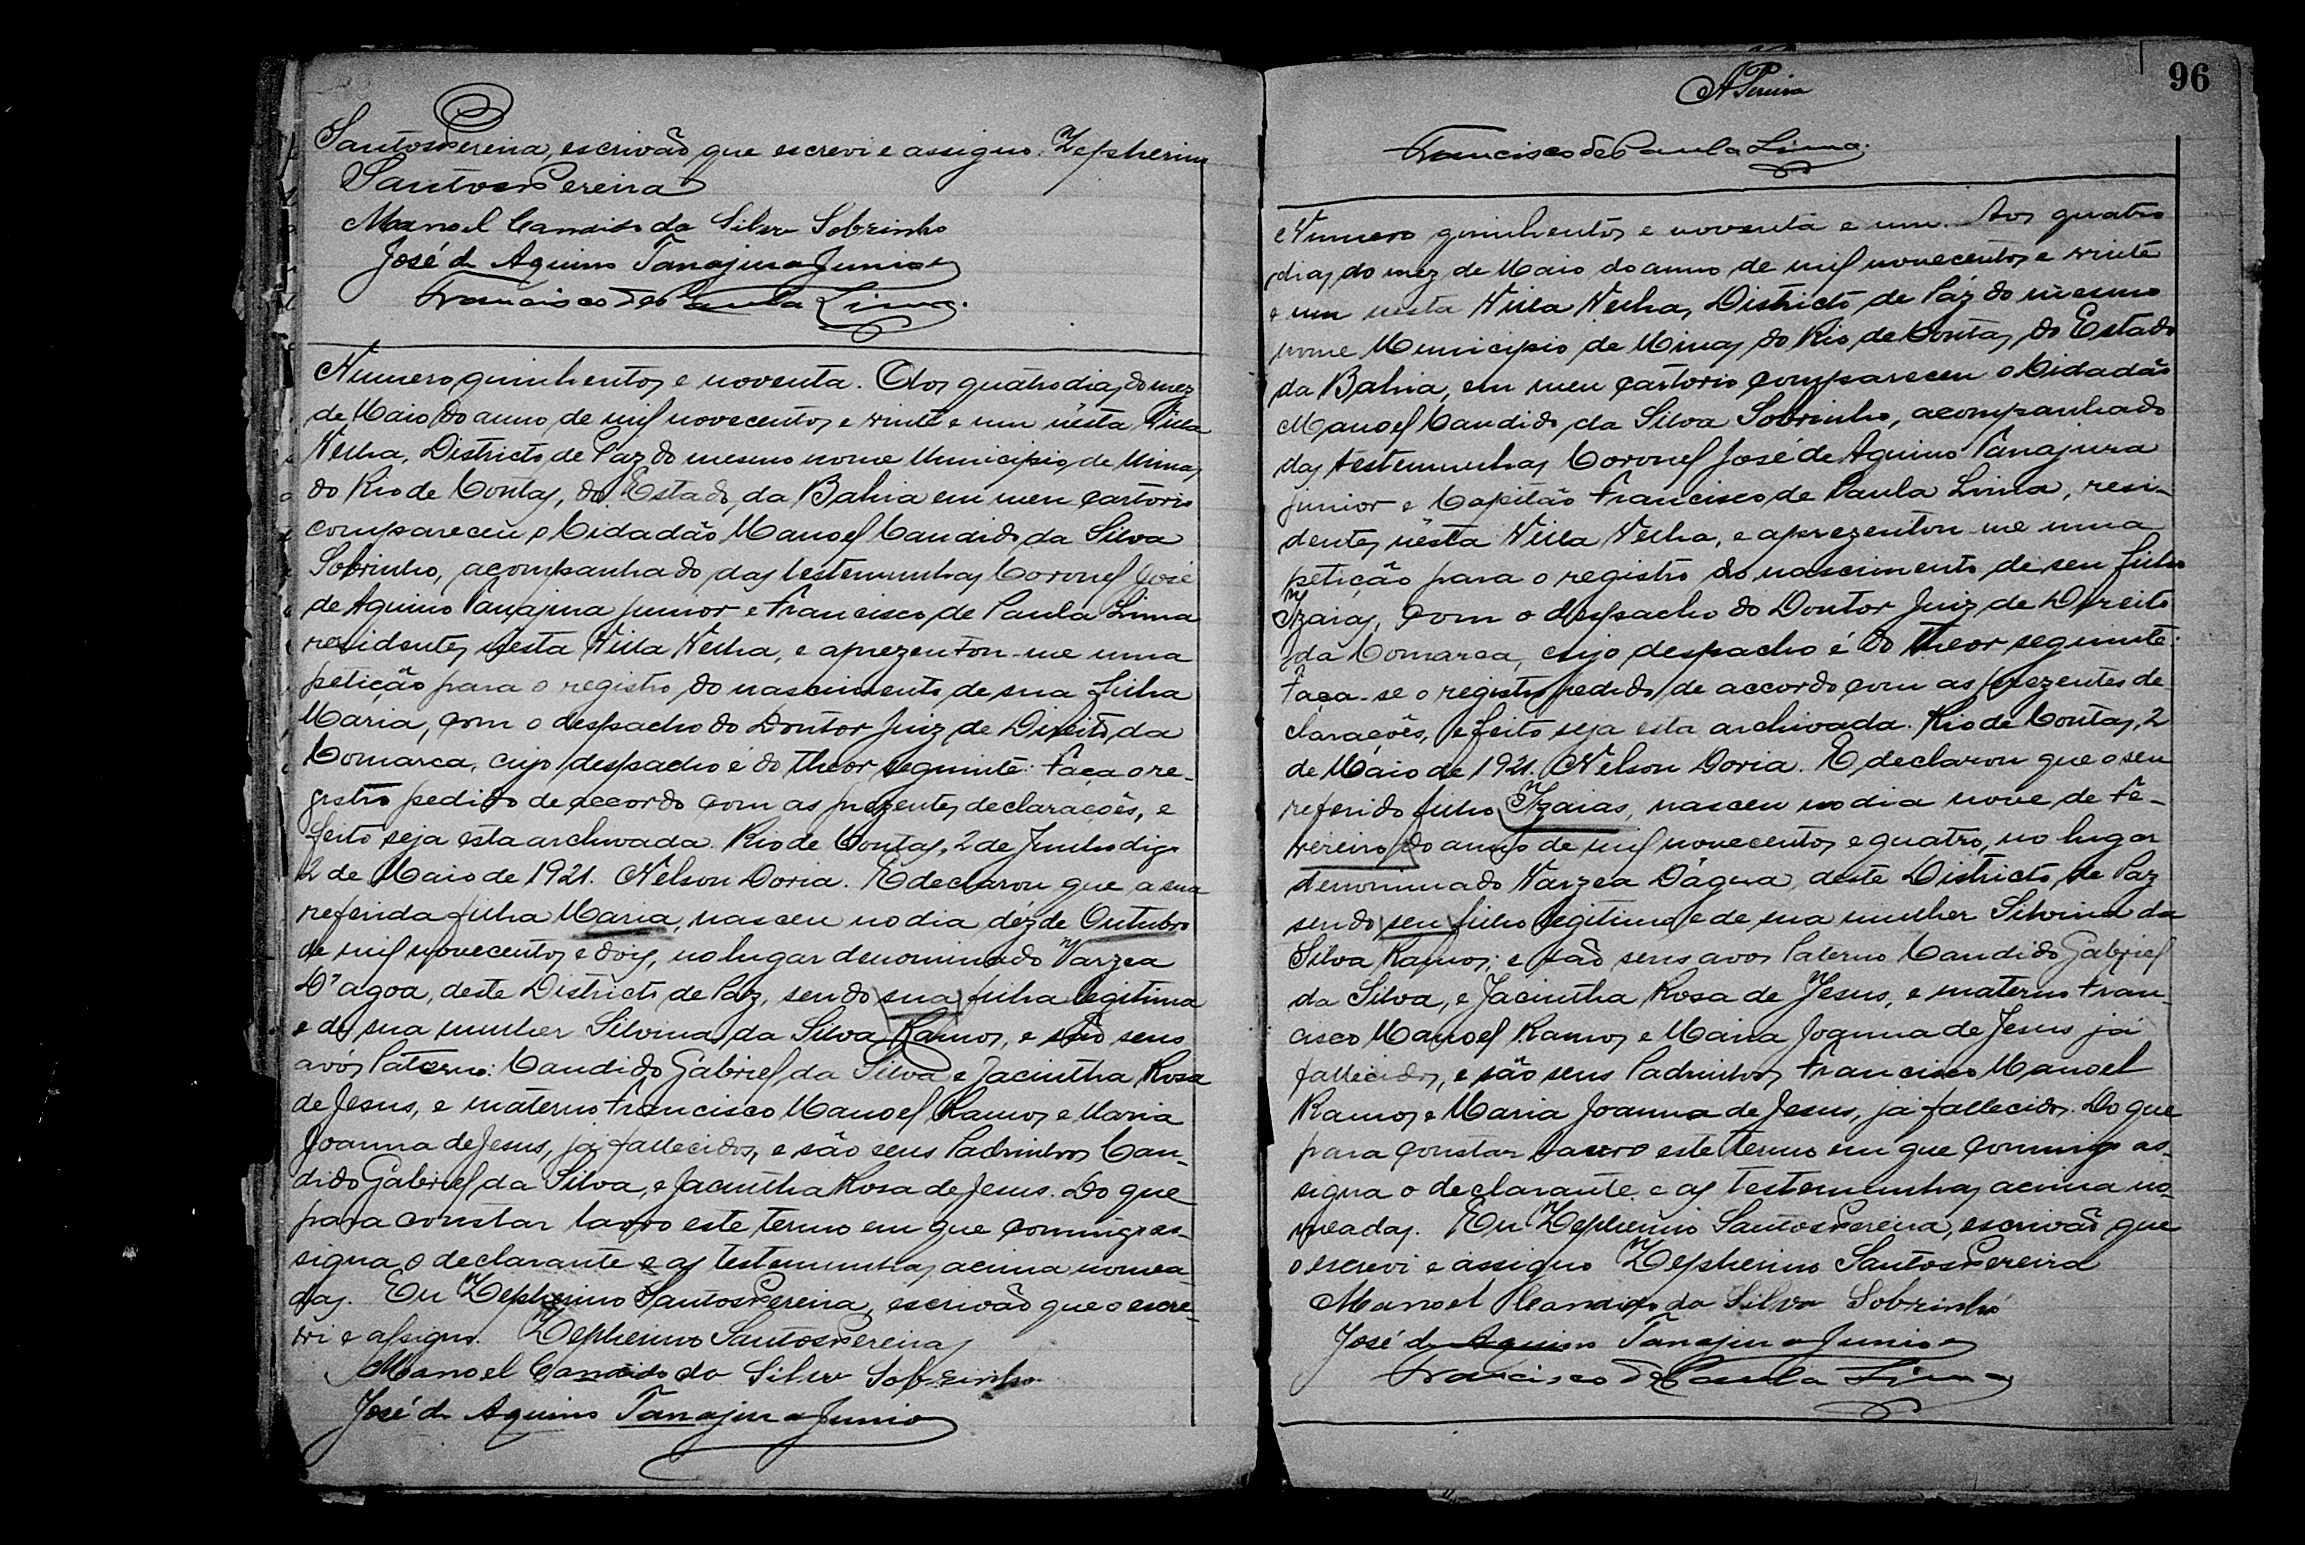 Santos Pereira, escrivão que escrevi e assigno. Zepherino
Santos Pereira
Manoel Candido da Silva Sobrinho
José de Aquino Tanajura Junior
Francisco de Paula Lima.
Numero quinhentos e noventa. Aos quatro dias do mez
de Maio do anno de mil novecentos e vinte e um nésta Villa
Velha, Districto de Paz do mesmo nome Municipio de Minas
do Rio de Contas, do Estado da Bahia em meu cartorio
compareceu o Cidadão Manoel Candido da Silva
Sobrinho, acompanhado das testemunhas Coronel José
de Aquino Tanajura Junior e Francisco de Paula Lima
residentes nésta Villa Velha, e aprezentou-me uma
petição para o registro do nascimento de sua filha
Maria, com o despacho do Doutor Juiz de Direito da
Comarca, cujo despacho é do theor seguinte: Faça o re-
gistro pedido de accordo com as prezentes declarações, e
feito seja esta archivada. Rio de Contas, 2 de Junho digo
2 de Maio de 1921. Nelson Doria. E declarou que a sua
referida filha Maria, nasceu no dia déz de Outubro
de mil novecentos e dois, no lugar denominado Varzea
D'agoa, deste Districto de Paz, sendo sua filha legitima
e de sua mulher Silvina da Silva Ramos, e são seus
avós Paterno: Candido Gabriel da Silva e Jacintha Rosa
de Jesus, e materno Francisco Manoel Ramos e Maria
Joanna de Jesus, já fallecidos, e são seus Padrinhos Can-
dido Gabriel da Silva, e Jacintha Rosa de Jesus. Do que
para constar lavro este termo em que commigo as-
signa o declarante e as testemunhas acima nomea-
das. Eu Zepherino Santos Pereira, escrivão que o escre-
vi e assigno. Zepherino Santos Pereira
Manoel Candido da Silva Sobrinho
José de Aquino Tanajura Junior
96
APereira
Francisco de Paula Lima.
Numero quinhentos e noventa e um. Aos quatro
dias do mez de Maio do anno de mil novecentos e vinte
e um nesta Villa Velha, Districto de Paz do mesmo
nome Municipio de Minas do Rio de Contas, do Estado
da Bahia, em meu cartorio compareceu o Cidadão
Manoel Candido da Silva Sobrinho, acompanhado
das testemunhas Coronel José de Aquino Tanajura
Junior e Capitão Francisco de Paula Lima, resi-
dentes nésta Villa Velha, e aprezentou-me uma
petição para o registro do nascimento de seu filho
Izaias, com o despacho do Doutor Juiz de Direito
da Comarca, cujo despacho é do theor seguinte:
Faça-se o registro pedido de accordo com as prezentes de-
clarações, e feito seja esta archivada. Rio de Contas, 2
de Maio de 1921. Nelson Doria. E declarou que o seu
referido filho Izaias, nasceu no dia nove de Fe-
vereiro do anno de mil novecentos e quatro, no lugar
denominado Varzea D'agua, deste Districto de Paz
sendo seu filho legitimo e de sua mulher Silvina da
Silva Ramos; e são seus avos Paterno Candido Gabriel
da Silva, e Jacintha Rosa de Jesus, e materno Fran-
cisco Manoel Ramos e Maria Joanna de Jesus já
fallecidos, e são seus Padrinhos Francisco Manoel
Ramos e Maria Joanna de Jesus, já fallecidos. Do que
para constar lavro este termo em que commigo as-
signa o declarante e as testemunhas acima no-
meadas. Eu Zepherino Santos Pereira, escrivão que
o escrevi e assigno Zepherino Santos Pereira
Manoel Candido da Silva Sobrinho
José de Aquino Tanajura Junior
Francisco de Paula Lima